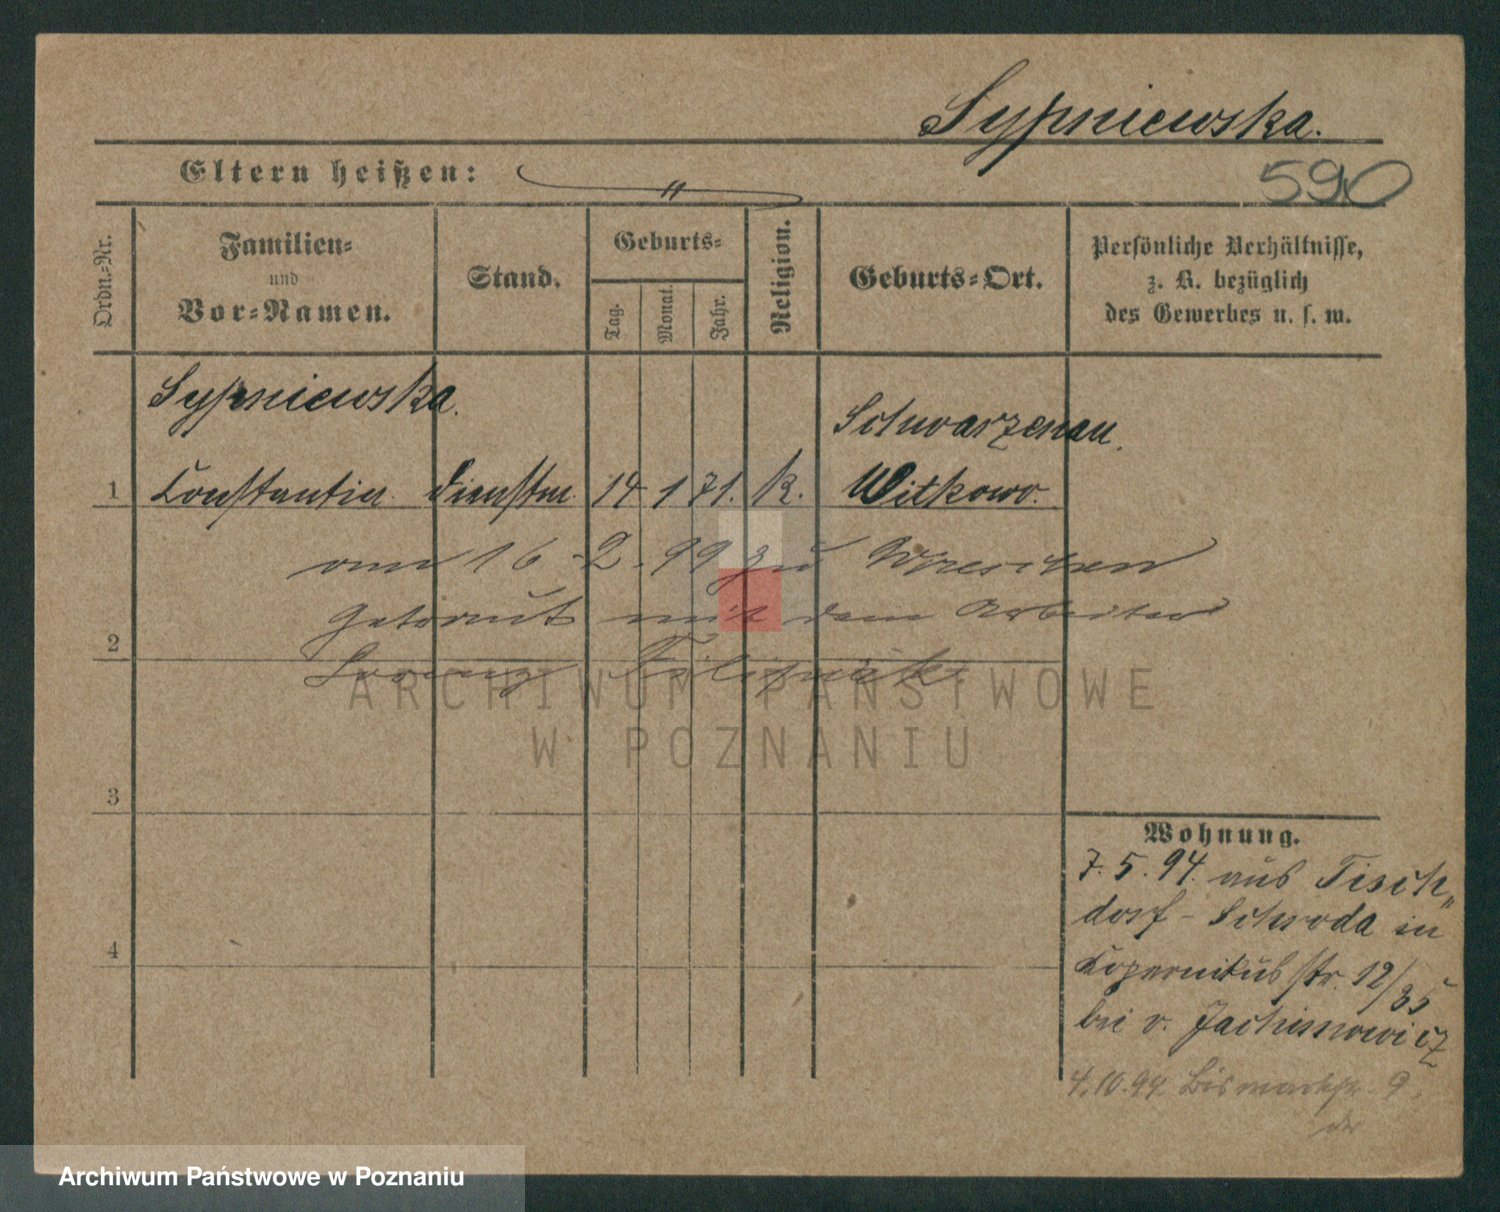 Sypniewska.
Eltern heißen: "
590
Ordn.-Nr.
Familien-
und
Vor-Namen.
Stand.
Geburts-
Tag.
Monat.
Jahr.
Religion.
Geburts-Ort.
Persönliche Verhältnisse,
z. B. bezüglich
des Gewerbes u. s. w.
Sypniewska.
Schwarzenau.
1 Constantia. Dienstm. 14 1 71. K. Witkowo.
am 16-2-99 zu Wreschen
getraut mit dem Arbeiter
2
Lorenz
ARCHIWUM PAŃSTWOWE
W POZNANIU
3
4
Wohnung.
7.5.94. aus Tisch„
dorf - Schroda in
Kopernikusstr. 12/35
bei v. Jachimowicz
4.10.94. Bismarckstr. 9.
Archiwum Państwowe w Poznaniu